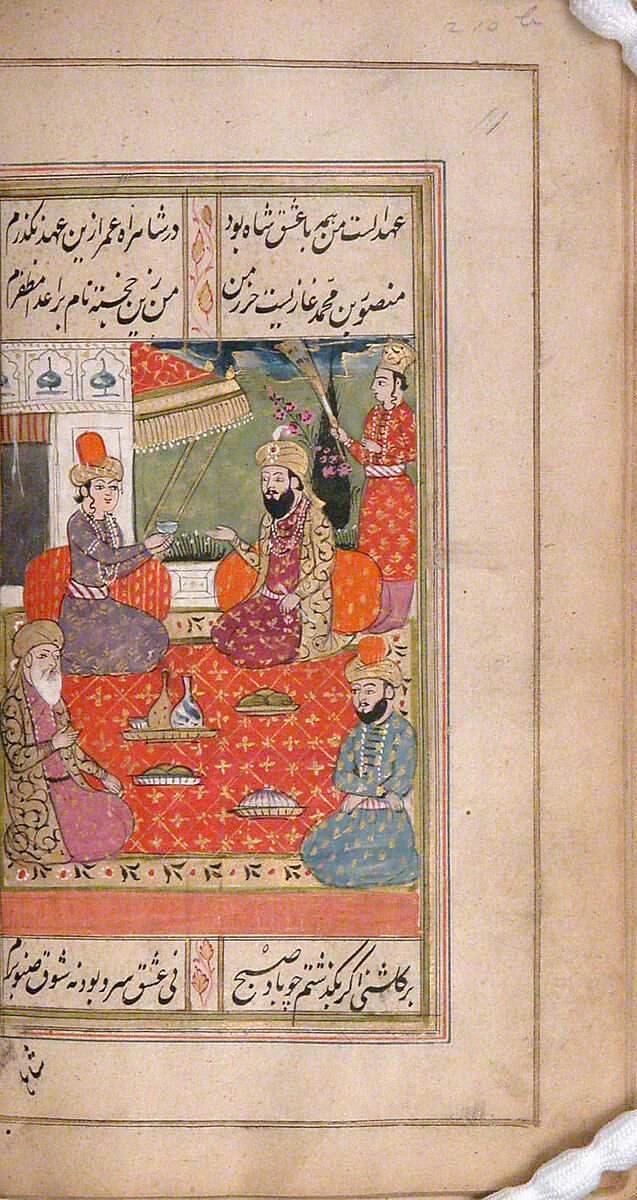 210 b
11
عهد الست من همه با عشق شاه بود
در شاهراه عمر ازین عهد نگذرم
منصور بن محمد غازیست حرز من
من زین خجسته نام بر اعدا مظفرم
بر گلشنی اگر بگذشتم چو باد صبح
نی عشق سرو بود نه شوق صنوبرم
شاها